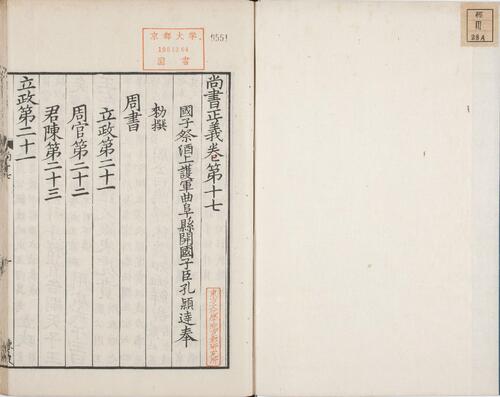 尚書正義卷第十七
國子祭酒上護軍曲阜縣開國子臣孔穎達奉
勑撰
周書
立政第二十一
周官第二十二
君陳第二十三
立政第二十一
京都大學
圖書
9551
經
III
28A